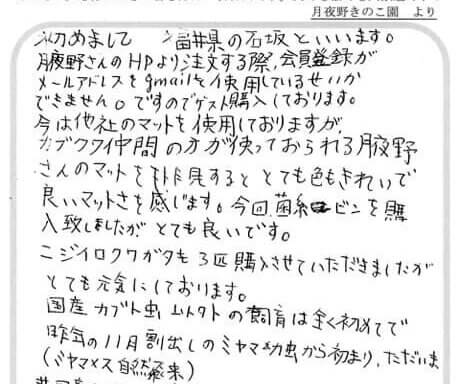 月夜野きのこ園 より
初めまして 福井県の石坂といいます。
月夜野さんのHPより注文する際、会員登録が
メールアドレスをgmailを使用しているせいか
できません。ですのでゲスト購入しております。
今は他社のマットを使用しておりますが、
カブクワ仲間の方が使っておられる月夜野
さんのマットを拝見すると とても色もきれいで
良いマットさを感じます。今回菌糸ビンを購
入致しましたが とても良いです。
ニジイロクワガタも3匹購入させていただきましたが
とても元気にしております。
国産カブト虫 以外の飼育は全く初めてで
昨年の11月割出しのミヤマ幼虫から初まり、ただいま
(ミヤマ×ス自然 来)